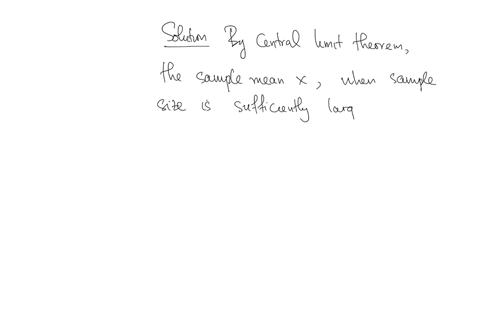 Solution By Central limit theorem,
the sample mean x, when sample
size is sufficiently larg